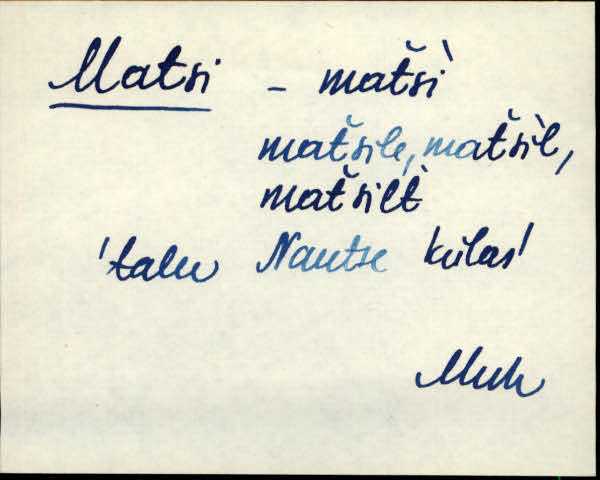 Matsi - matši̇̀
matšile, matši̇̀l,
matšilt̀
'talu Nautse külas'
Muh